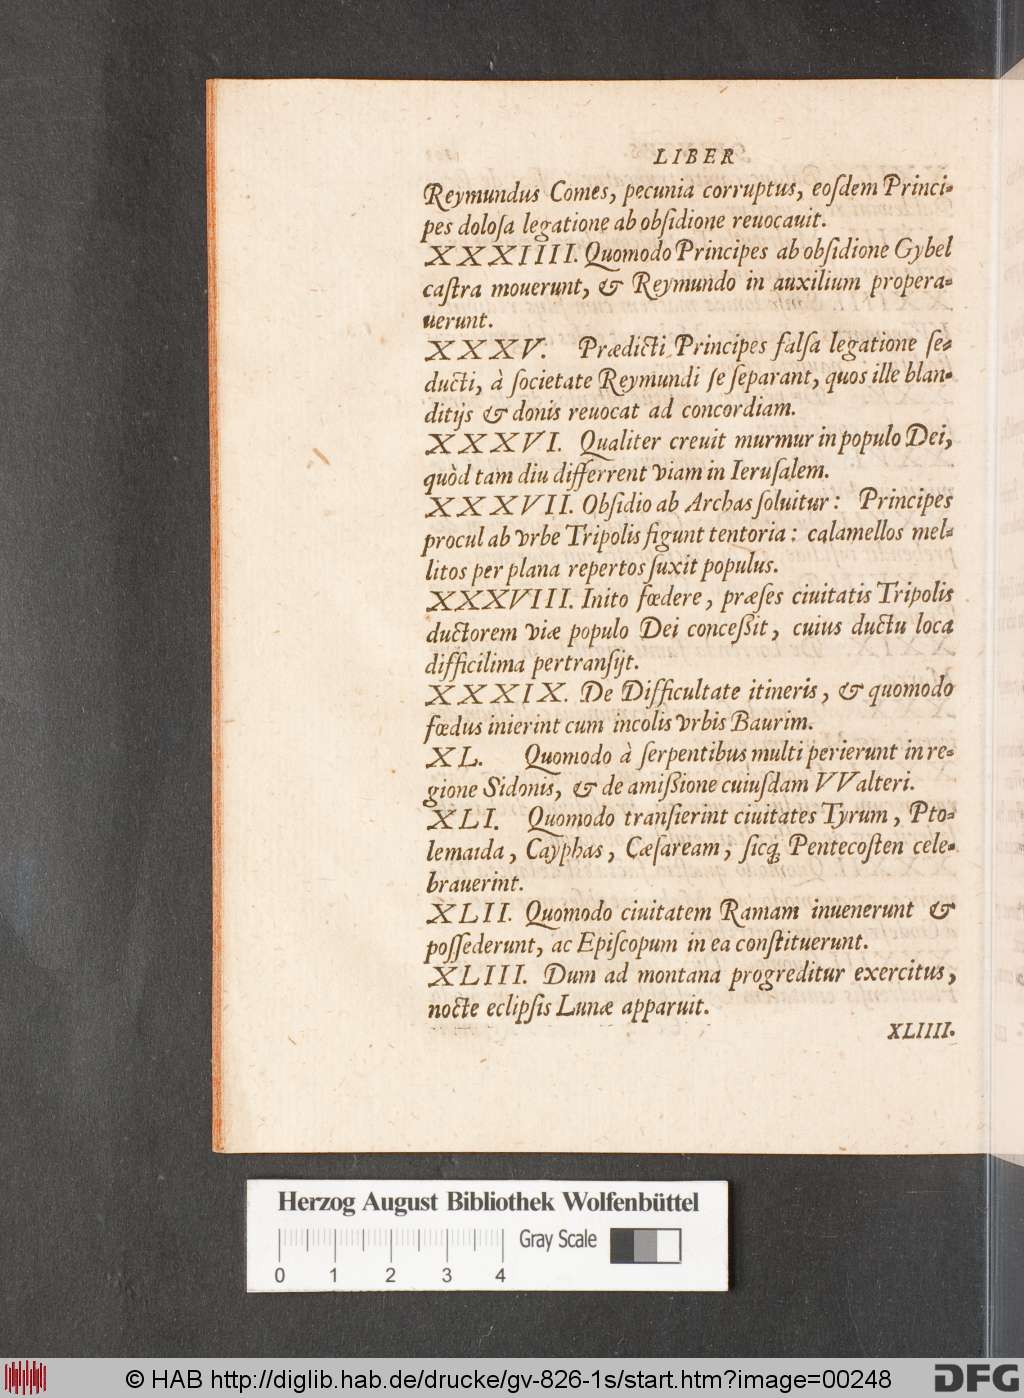 LIBER
Reymundus Comes, pecunia corruptus, eoſdem Princi-
pes doloſa legatione ab obſidione reuocauit.
XXXIIII. Quomodo Principes ab obſidione Gybel
caſtra mouerunt, & Reymundo in auxilium propera-
uerunt.
XXXV. Prædicti Principes falſa legatione ſe-
ducti, à ſocietate Reymundi ſe ſeparant, quos ille blan-
ditijs & donis reuocat ad concordiam.
XXXVI. Qualiter creuit murmur in populo Dei,
quòd tam diu differrent viam in Ieruſalem.
XXXVII. Obſidio ab Archas ſoluitur: Principes
procul ab vrbe Tripolis figunt tentoria: calamellos mel-
litos per plana repertos ſuxit populus.
XXXVIII. Inito fœdere, præſes ciuitatis Tripolis
ductorem viæ populo Dei conceßit, cuius ductu loca
difficilima pertranſijt.
XXXIX. De Difficultate itineris, & quomodo
fœdus inierint cum incolis vrbis Baurim.
XL. Quomodo à ſerpentibus multi perierunt in re-
gione Sidonis, & de amißione cuiuſdam VValteri.
XLI. Quomodo tranſierint ciuitates Tyrum, Pto-
lemaida, Cayphas, Cæſaream, ſicq́; Pentecoſten cele-
brauerint.
XLII. Quomodo ciuitatem Ramam inuenerunt &
poſſederunt, ac Epiſcopum in ea conſtituerunt.
XLIII. Dum ad montana progreditur exercitus,
nocte eclipſis Lunæ apparuit.
XLIIII.
Herzog August Bibliothek Wolfenbüttel
Gray Scale
0 1 2 3 4
© HAB http://diglib.hab.de/drucke/gv-826-1s/start.htm?image=00248
DFG